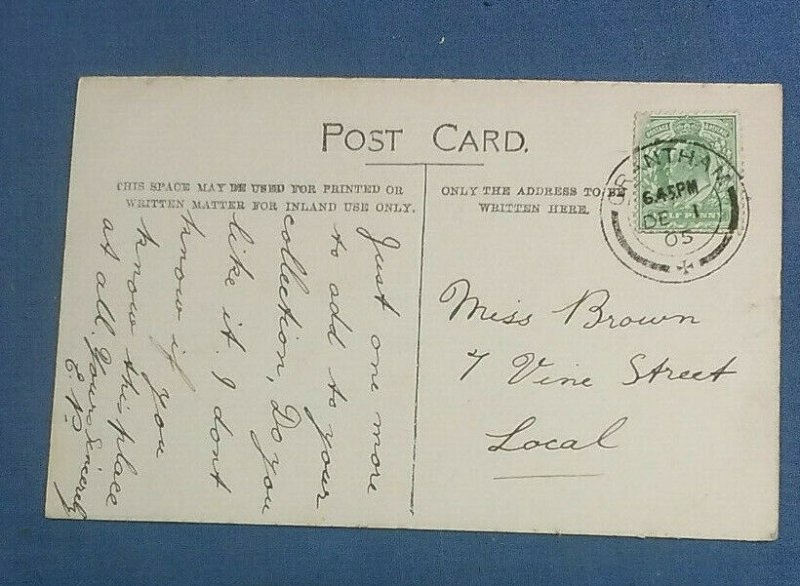 POST CARD.
THIS SPACE MAY BE USED FOR PRINTED OR
WRITTEN MATTER FOR INLAND USE ONLY.
ONLY THE ADDRESS TO BE
WRITTEN HERE.
GRANTHAM
6.45PM
DE 1
05
HALFPENNY
Just one more
to add to your
collection, Do you
like it. I dont
know if you
know this place
at all. Yours Sincerely
E.P.
Miss Brown
7 Vine Street
Local